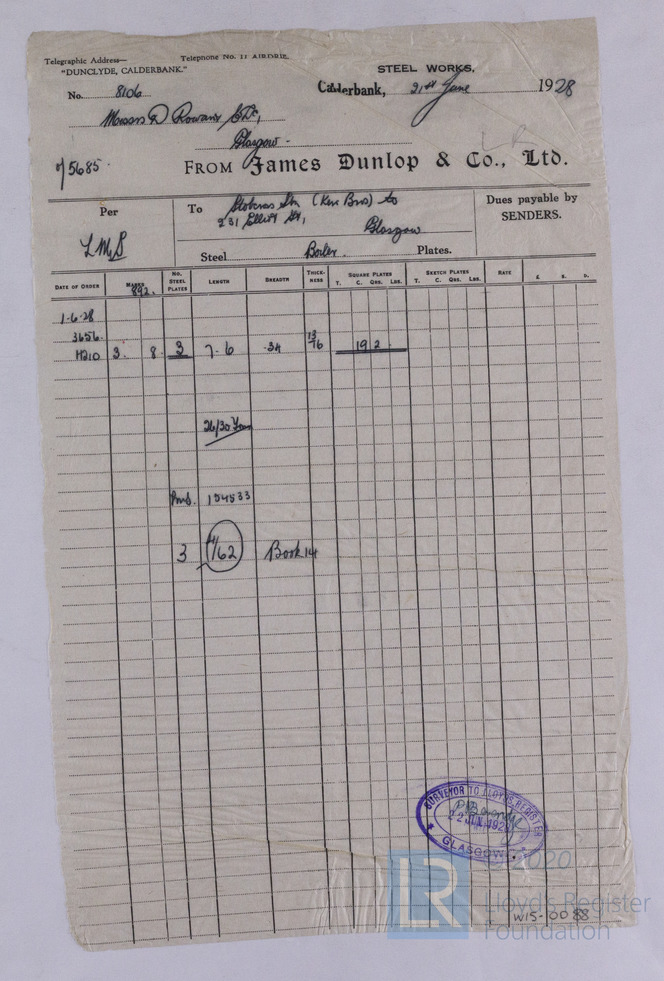 Telegraphic Address— Telephone No. 11 AIRDRIE.
"DUNCLYDE, CALDERBANK."
STEEL WORKS,
No. 8106 Calderbank, 21st June 1928
Messrs D Rowan & Co,
Glasgow -
LR
5685
FROM James Dunlop & Co., Ltd.
Per To Stobcross Stn (Kerr Bros) to Dues payable by
231 Elliot St, SENDERS.
LMS Glasgow
Steel Boiler Plates.
DATE OF ORDER MARKS NO. STEEL PLATES LENGTH BREADTH THICKNESS SQUARE PLATES T. C. QRS. LBS. SKETCH PLATES T. C. QRS. LBS. RATE £ S. D.
892.
1-6-28
3656.
H210 3. 8. 3 7-6 .34 13/16 19 2.
26/30 Tons
154533
3 4/62 Book 14
SURVEYOR TO LLOYD'S REGISTER
22 JUN 1928
GLASGOW.
© 2020
LR Lloyd's Register
Foundation
W15-0088